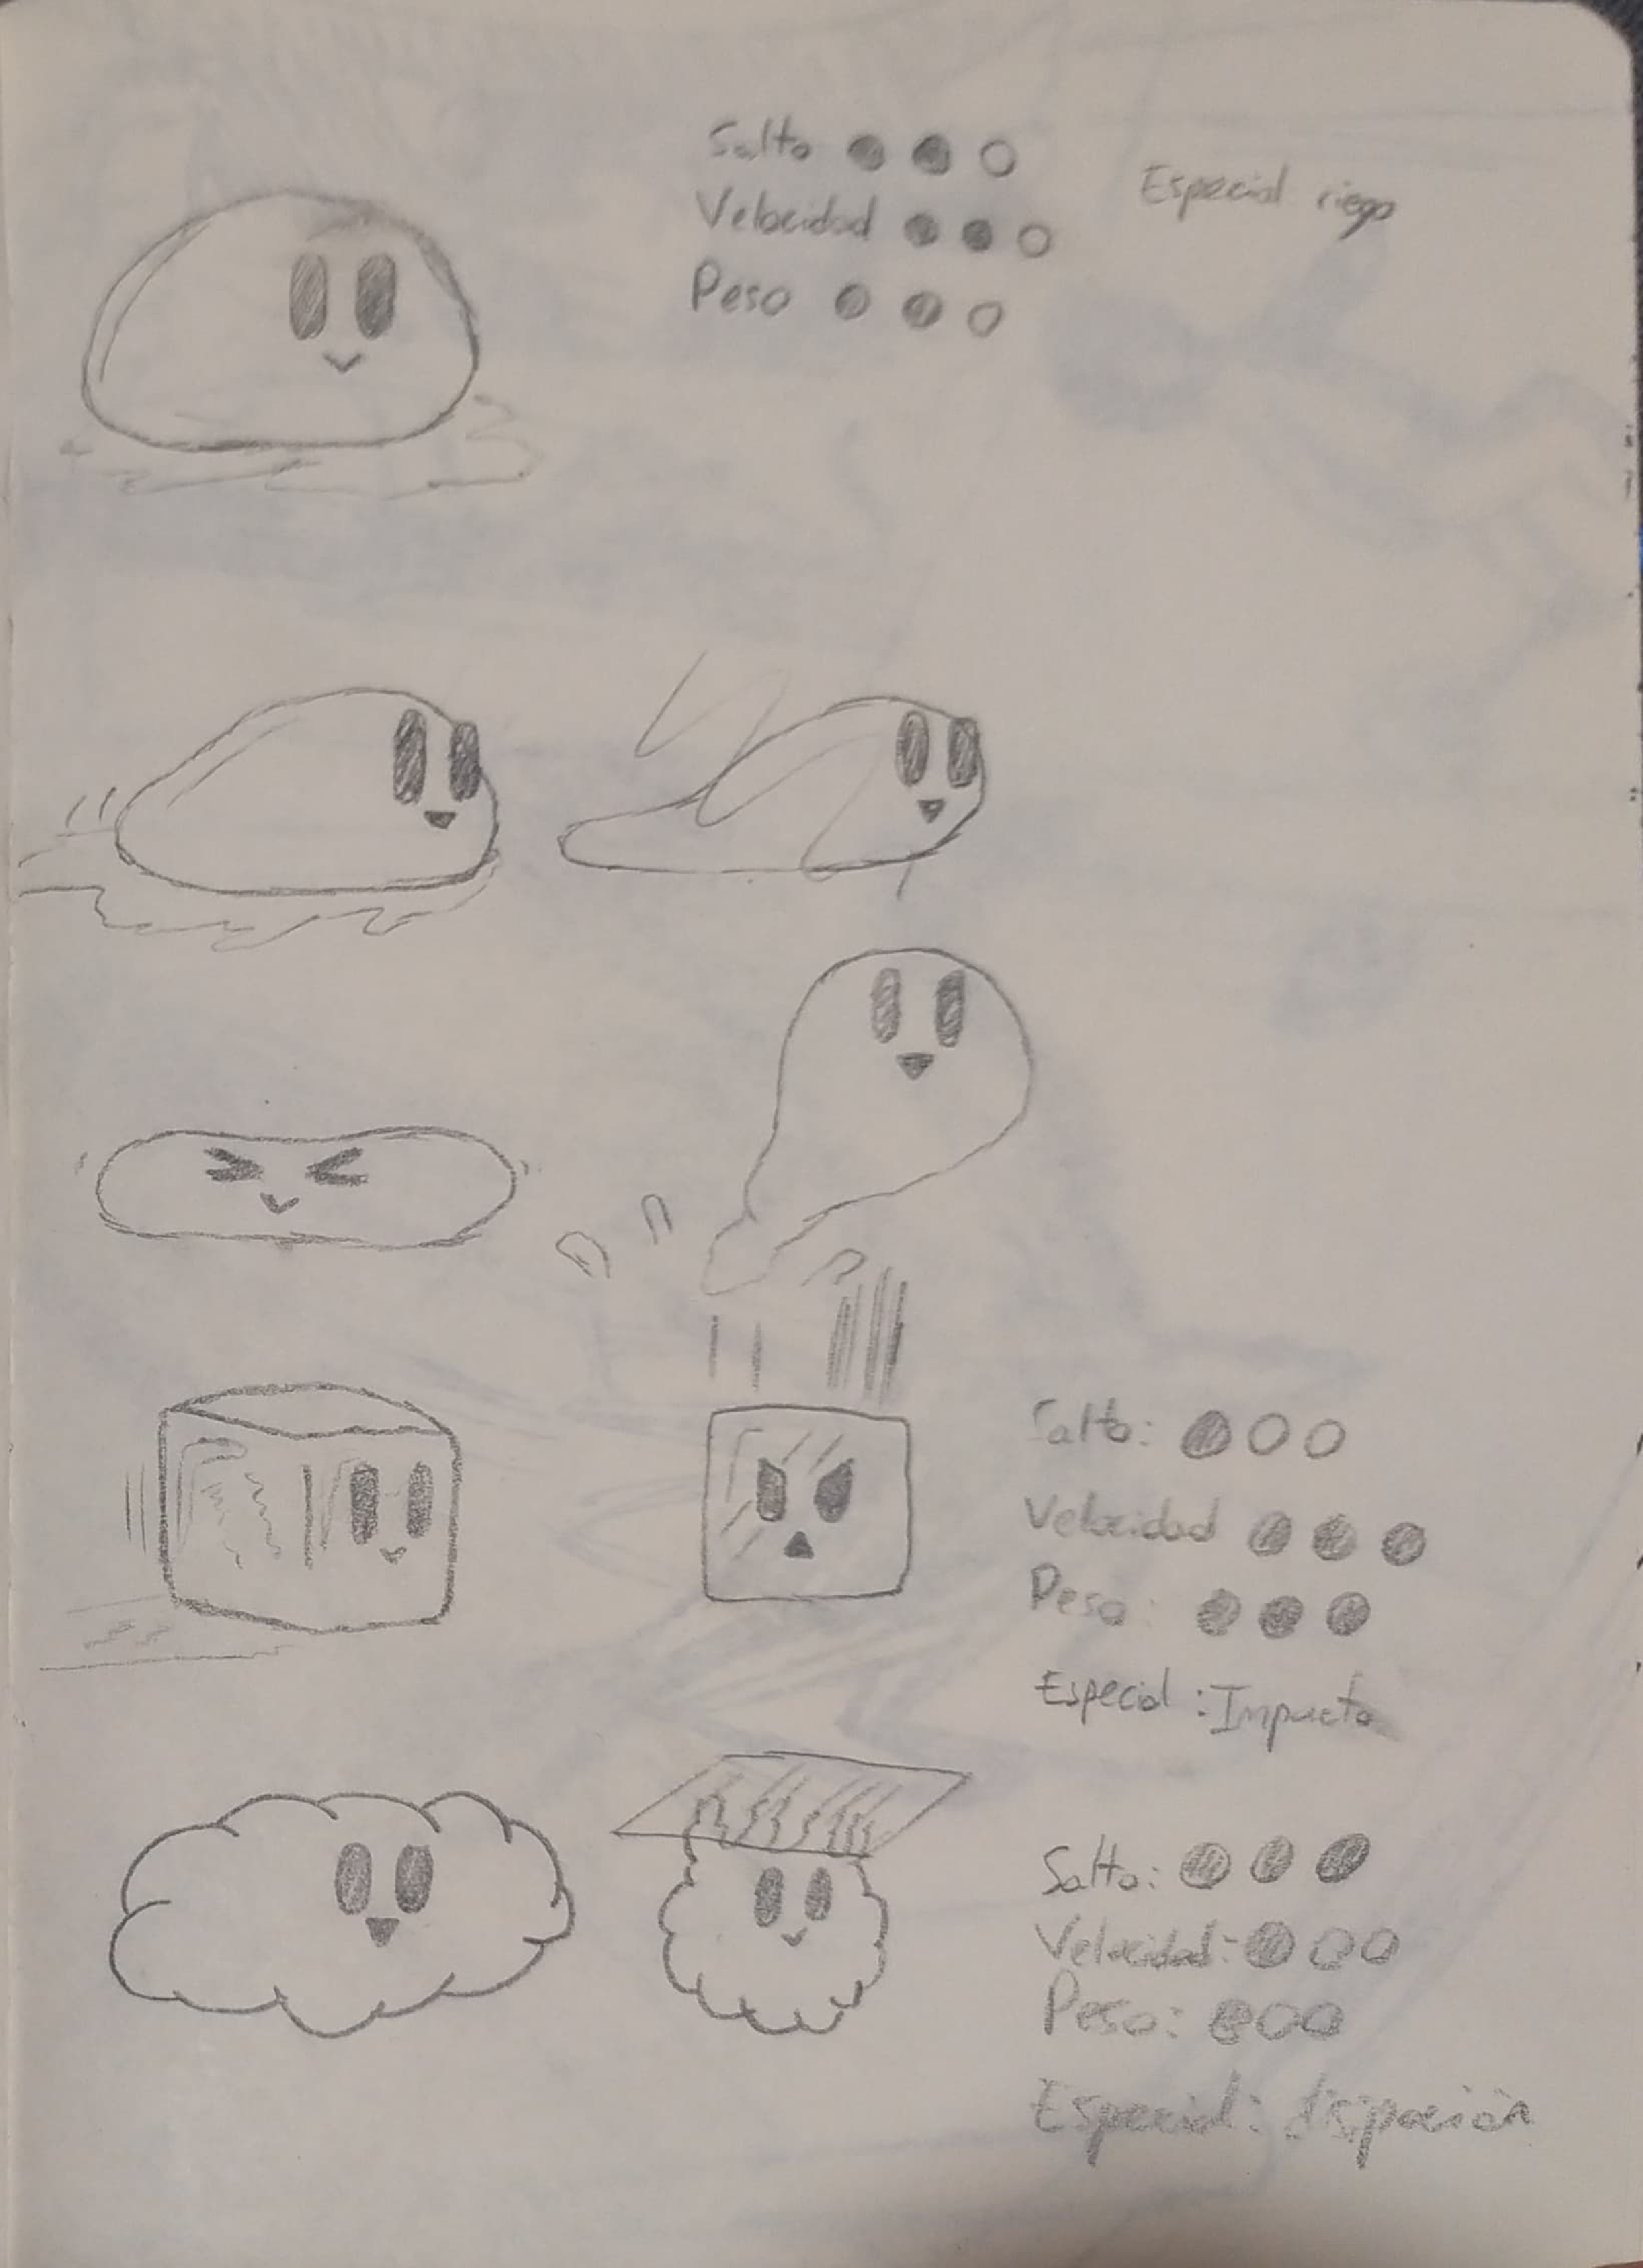 Salto
Velocidad
Peso
Especial riego
Salto:
Velocidad
Peso:
Especial: Impacto
Salto:
Velocidad:
Peso:
Especial: disipación